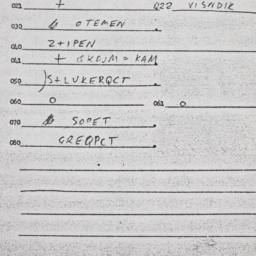 021 + 022 VISNDIK
030 OTEMEN
040 Z+IPEN
041 + BKOJM=KAM
050 )S+LUKERQCT
060 0 061 0
070 SOPET
080 GREQPCT